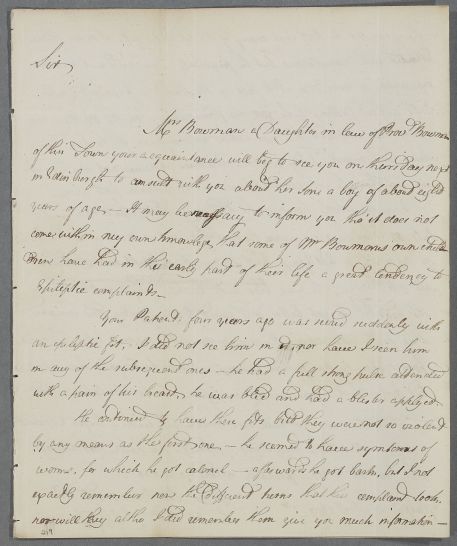 Sir,
Mrs Bowman a Daughter in law of Prov.t Bowman
of this Town your acquaintance will beg to see you on thursday next
in Edinburgh to consult with you about her Son a boy of about eight
years of age — It may be necessary to inform you tho' it does not
come within my own knowledge, that some of Mr Bowmans own child-
ren have had in the early part of their life a great tendency to
Epileptic complaints —
Your Patient four years ago was seized suddenly with
an epileptic fit. I did not see him in it, nor have I seen him
in any of the subsequent ones — he had a full strong pulse attended
with a pain of his breast, he was bled and had a blister applyed
He continued to have these fits but they were not so violent
by any means as the first one — he seemed to have symptoms of
worms, for which he got calomel — afterwards he got bark, but I not
exactly remember now the different turns that this complaint took.
nor will they altho I did remember them give you much information —
219